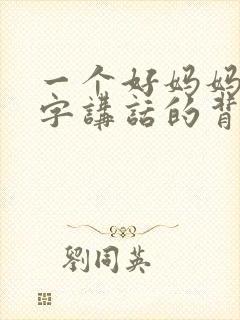 一个好妈妈
字講話的背
劉同英